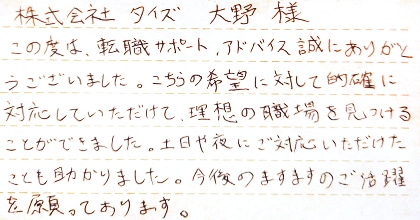 株式会社 タイズ 大野 様
この度は、転職サポート、アドバイス誠にありがと
うございました。こちらの希望に対して的確に
対応していただけて、理想の職場を見つける
ことができました。土日や夜にご対応いただけた
ことも助かりました。今後のますますのご活躍
を願っております。